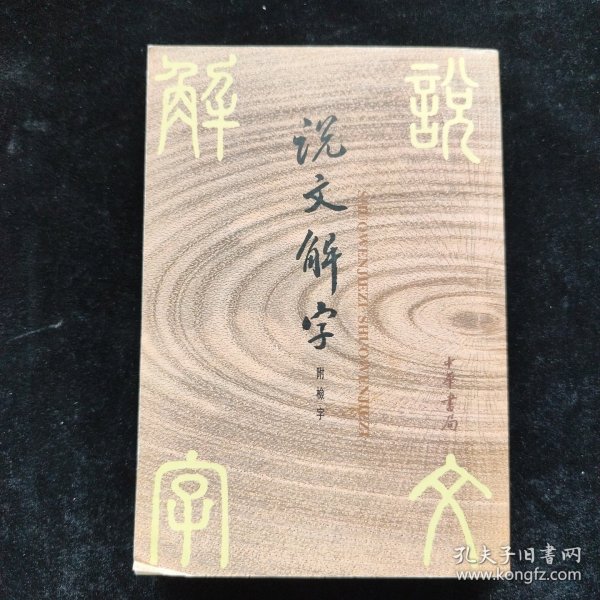 說文
解字
说文解字
附檢字
SHUOWENJIEZI SHUOWENJIEZI
中华书局
孔夫子旧书网
www.kongfz.com